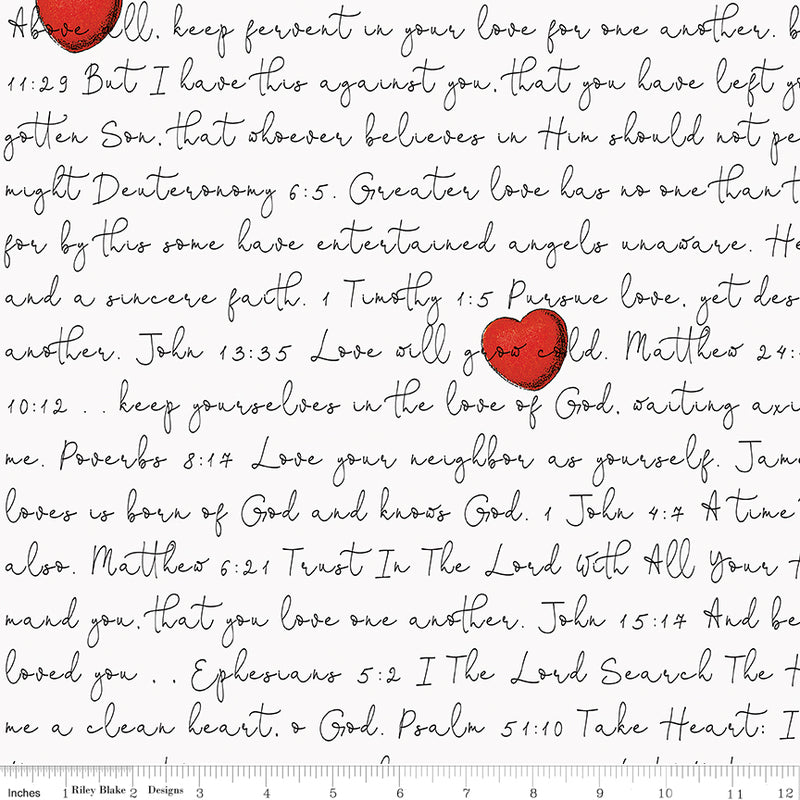 Above all, keep fervent in your love for one another. b
11:29 But I have this against you, that you have left y
gotten Son, that whoever believes in Him should not pe
might Deuteronomy 6:5. Greater love has no one than t
for by this some have entertained angels unaware. He
and a sincere faith. 1 Timothy 1:5 Pursue love, yet des
another. John 13:35 Love will grow cold. Matthew 24:
10:12 . . keep yourselves in the love of God, waiting axi
me. Poverbs 8:17 Love your neighbor as yourself. Jam
loves is born of God and knows God. 1 John 4:7 A time
also. Matthew 6:21 Trust In The Lord With All Your H
mand you, that you love one another. John 15:17 And be
loved you . . Ephesians 5:2 I The Lord Search The H
me a clean heart, o God. Psalm 51:10 Take Heart: I
Inches 1 Riley Blake 2 Designs 3 4 5 6 7 8 9 10 11 12